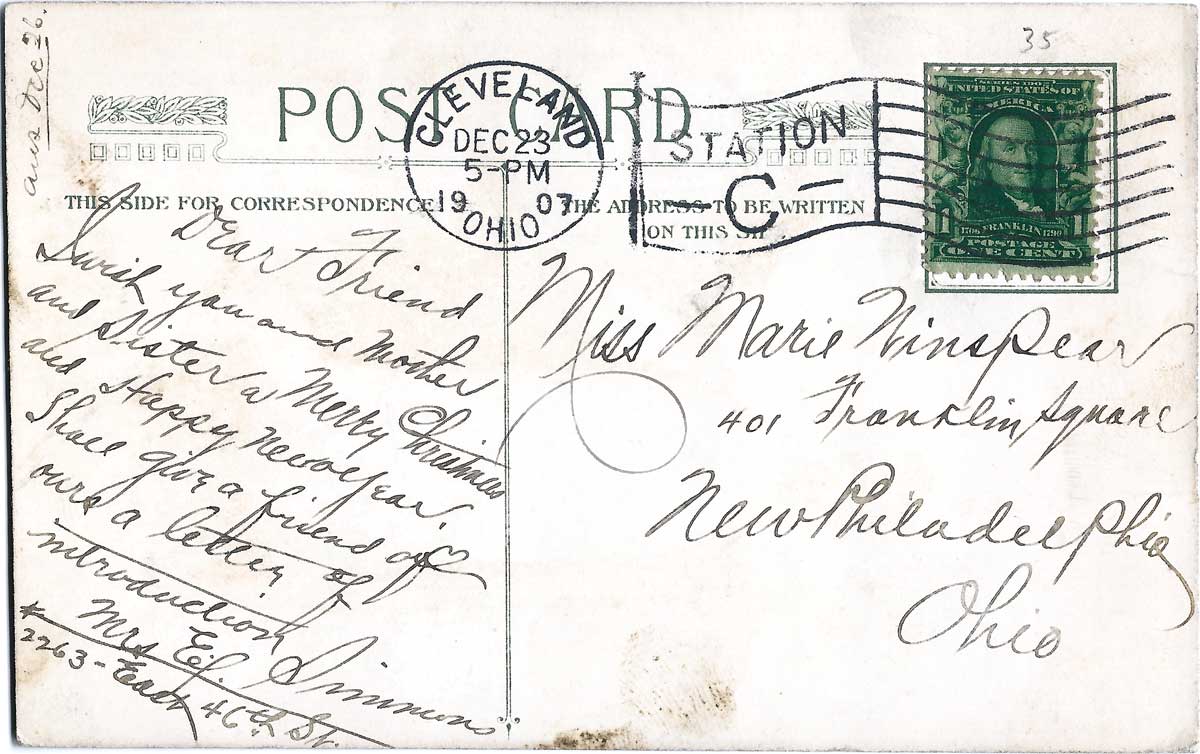 35
ans Dec 26.
POST CARD
CLEVELAND
DEC 23
5-PM
1907
OHIO
STATION
C
SERIES 1902
UNITED STATES OF
AMERICA
1706 FRANKLIN 1790
1 1
POSTAGE
ONE CENT
THIS SIDE FOR CORRESPONDENCE
THE ADDRESS TO BE WRITTEN
ON THIS SIDE.
Dear Friend
I wish you and Mother
and Sister a Merry Christmas
and Happy New Year.
Shall give a friend of
ours a letter of
introduction
Mrs E. Simmons
* 2263 - East 46th St.
Miss Marie Winspear
401 Franklin Square
New Philadelphia
Ohio